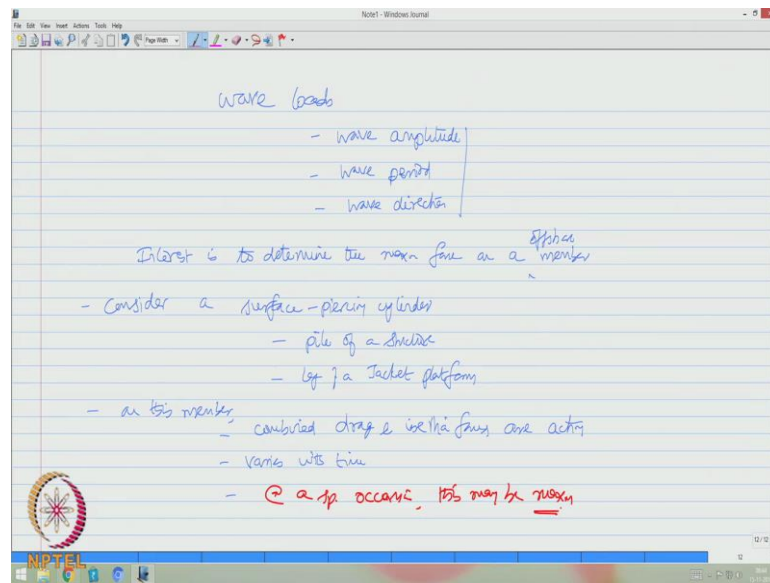 Note1 - Windows Journal
File Edit View Insert Actions Tools Help
Page Width
wave loads
- wave amplitude
- wave period
- wave direction
Interest is to determine the maxm force on a offshore member
- Consider a surface-piercing cylinder
- pile of a structure
- leg of a Jacket platform
- on this member,
- combined drag & inertia forces are acting
- varies with time
- @ a sp. occasion, this may be maxm
12/12
12
NPTEL